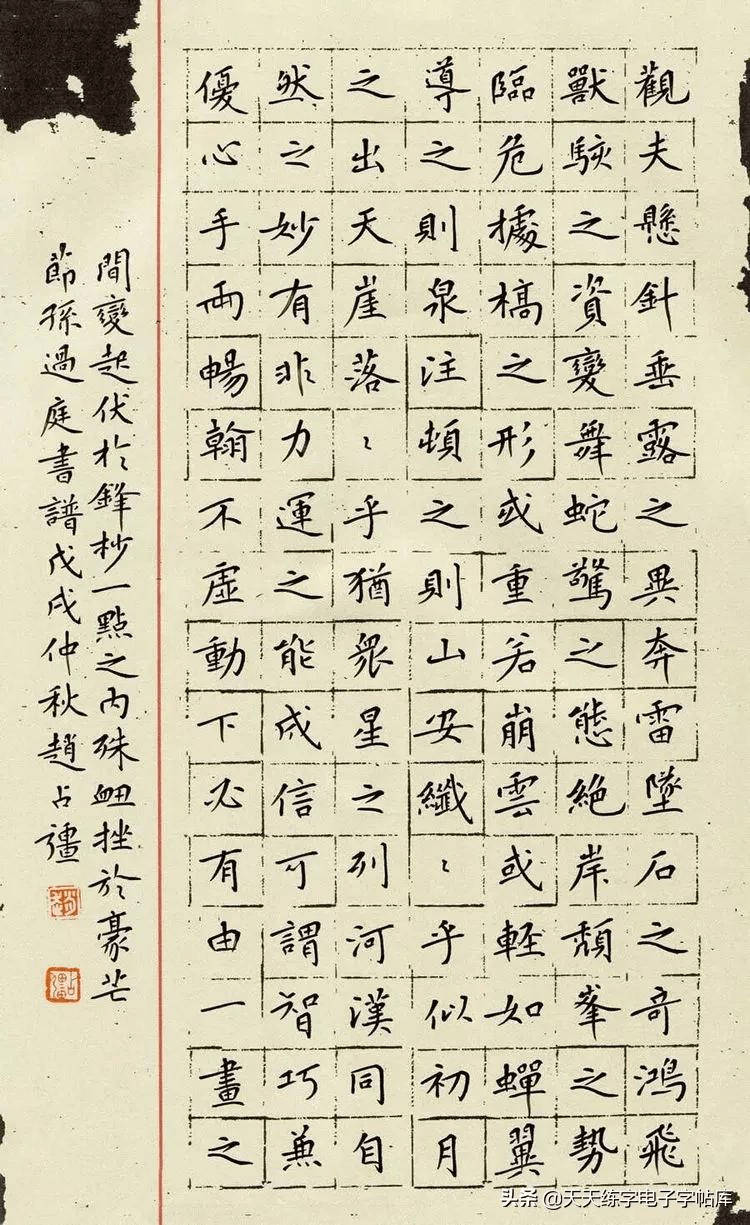 觀夫懸針垂露之異奔雷墜石之奇鴻飛
獸駭之資變舞蛇驚之態絕岸頹峯之勢
臨危據槁之形或重若崩雲或輕如蟬翼
導之則泉注頓之則山安纖〻乎似初月
之出天崖落〻乎猶衆星之列河漢同自
然之妙有非力運之能成信可謂智巧兼
優心手兩暢翰不虛動下必有由一畫之
間變起伏於鋒杪一點之內殊衄挫於豪芒
節孫過庭書譜戊戌仲秋趙占彊
趙
占彊
头条 @天天练字电子字帖库